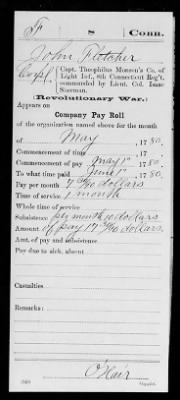 F | 8 | Conn.
John Fletcher
Corpl., Capt. Theophilus Munson's Co. of
Light Inf., 8th Connecticut Reg't,
commanded by Lieut. Col. Isaac
Sherman.
(Revolutionary War.)
Appears on
Company Pay Roll
of the organization named above for the month
of May, 1780.
Commencement of time, 17
Commencement of pay May 1st, 1780.
To what time paid June 1st, 1780.
Pay per month 7 30/90 dollars
Time of service 1 month
Whole time of service
Subsistence per month 10 dollars
Amount of pay 17 30/90 dollars.
Amt. of pay and subsistence
Pay due to sick, absent
Casualties
Remarks:
O'Hair
Copyist.